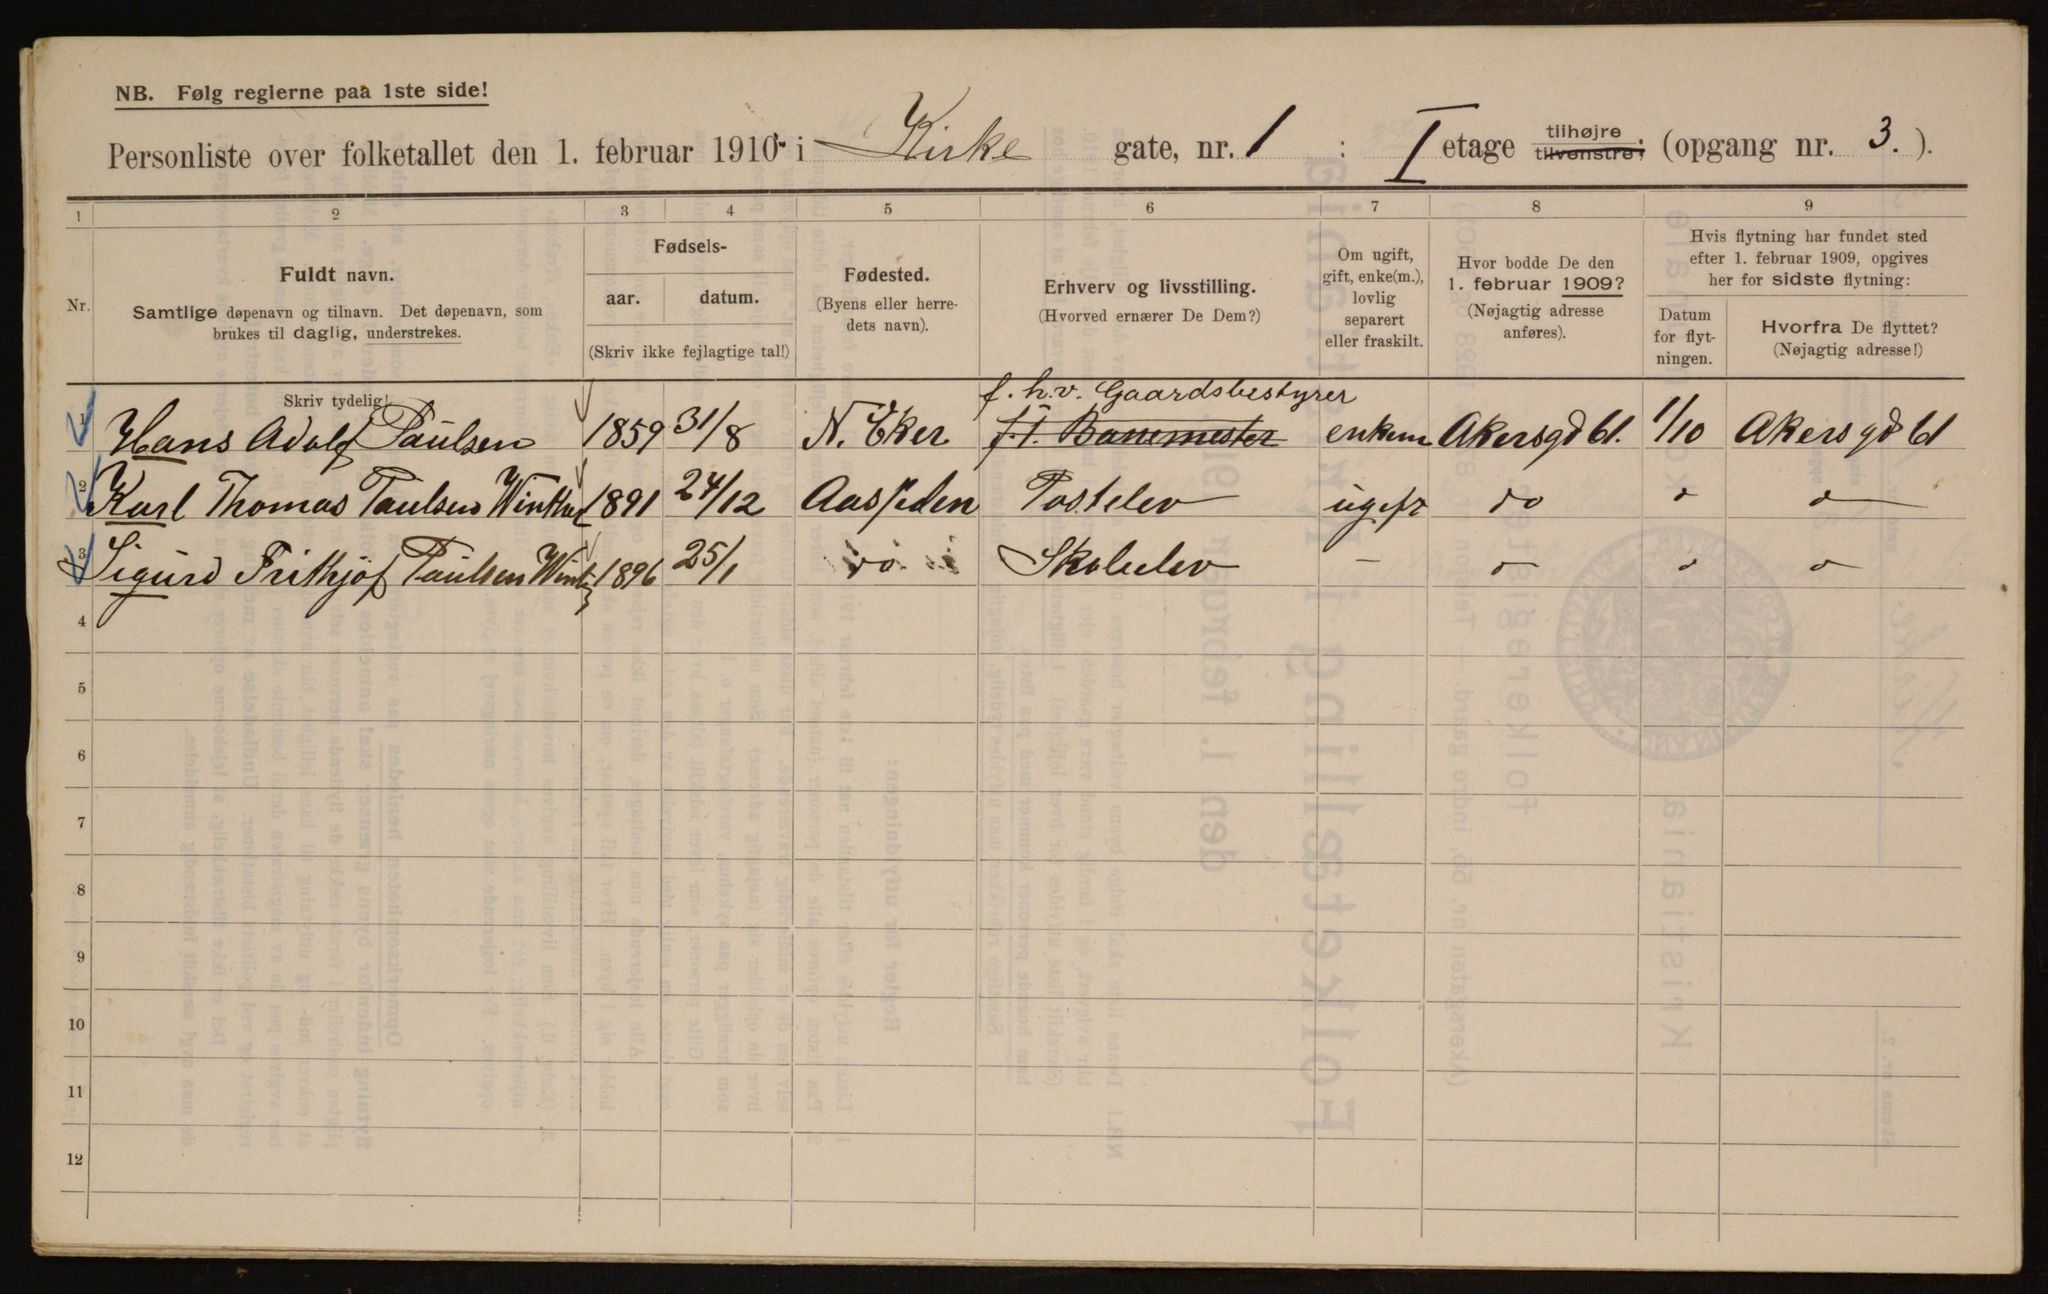 NB. Følg reglerne paa 1ste side!
Personliste over folketallet den 1. februar 1910 i Kirke gate, nr. 1 : I etage tilhøjre tilvenstre; (opgang nr. 3.).
1 2 3 4 5 6 7 8 9
Nr. Fuldt navn. Samtlige døpenavn og tilnavn. Det døpenavn, som brukes til daglig, understrekes.
Fødsels- aar. datum. (Skriv ikke fejlagtige tal!)
Fødested. (Byens eller herredets navn).
Erhverv og livsstilling. (Hvorved ernærer De Dem?)
Om ugift, gift, enke(m.), lovlig separert eller fraskilt.
Hvor bodde De den 1. februar 1909? (Nøjagtig adresse anføres).
Hvis flytning har fundet sted efter 1. februar 1909, opgives her for sidste flytning:
Datum for flytningen.
Hvorfra De flyttet? (Nøjagtig adresse!)
Skriv tydelig!
f. h.v. Gaardsbestyrer
1 Hans Adolf Paulsen 1859 31/8 N. Eker f.t. Banemester enkem Akersgd 61. 1/10 Akersgd 61
2 Karl Thomas Paulsen Winther 1891 24/12 Aas Postelev ugift do " "
3 Sigurd Frithjof Paulsen 1896 25/1 do. Skoleelev - " " "
4
5
6
7
8
9
10
11
12